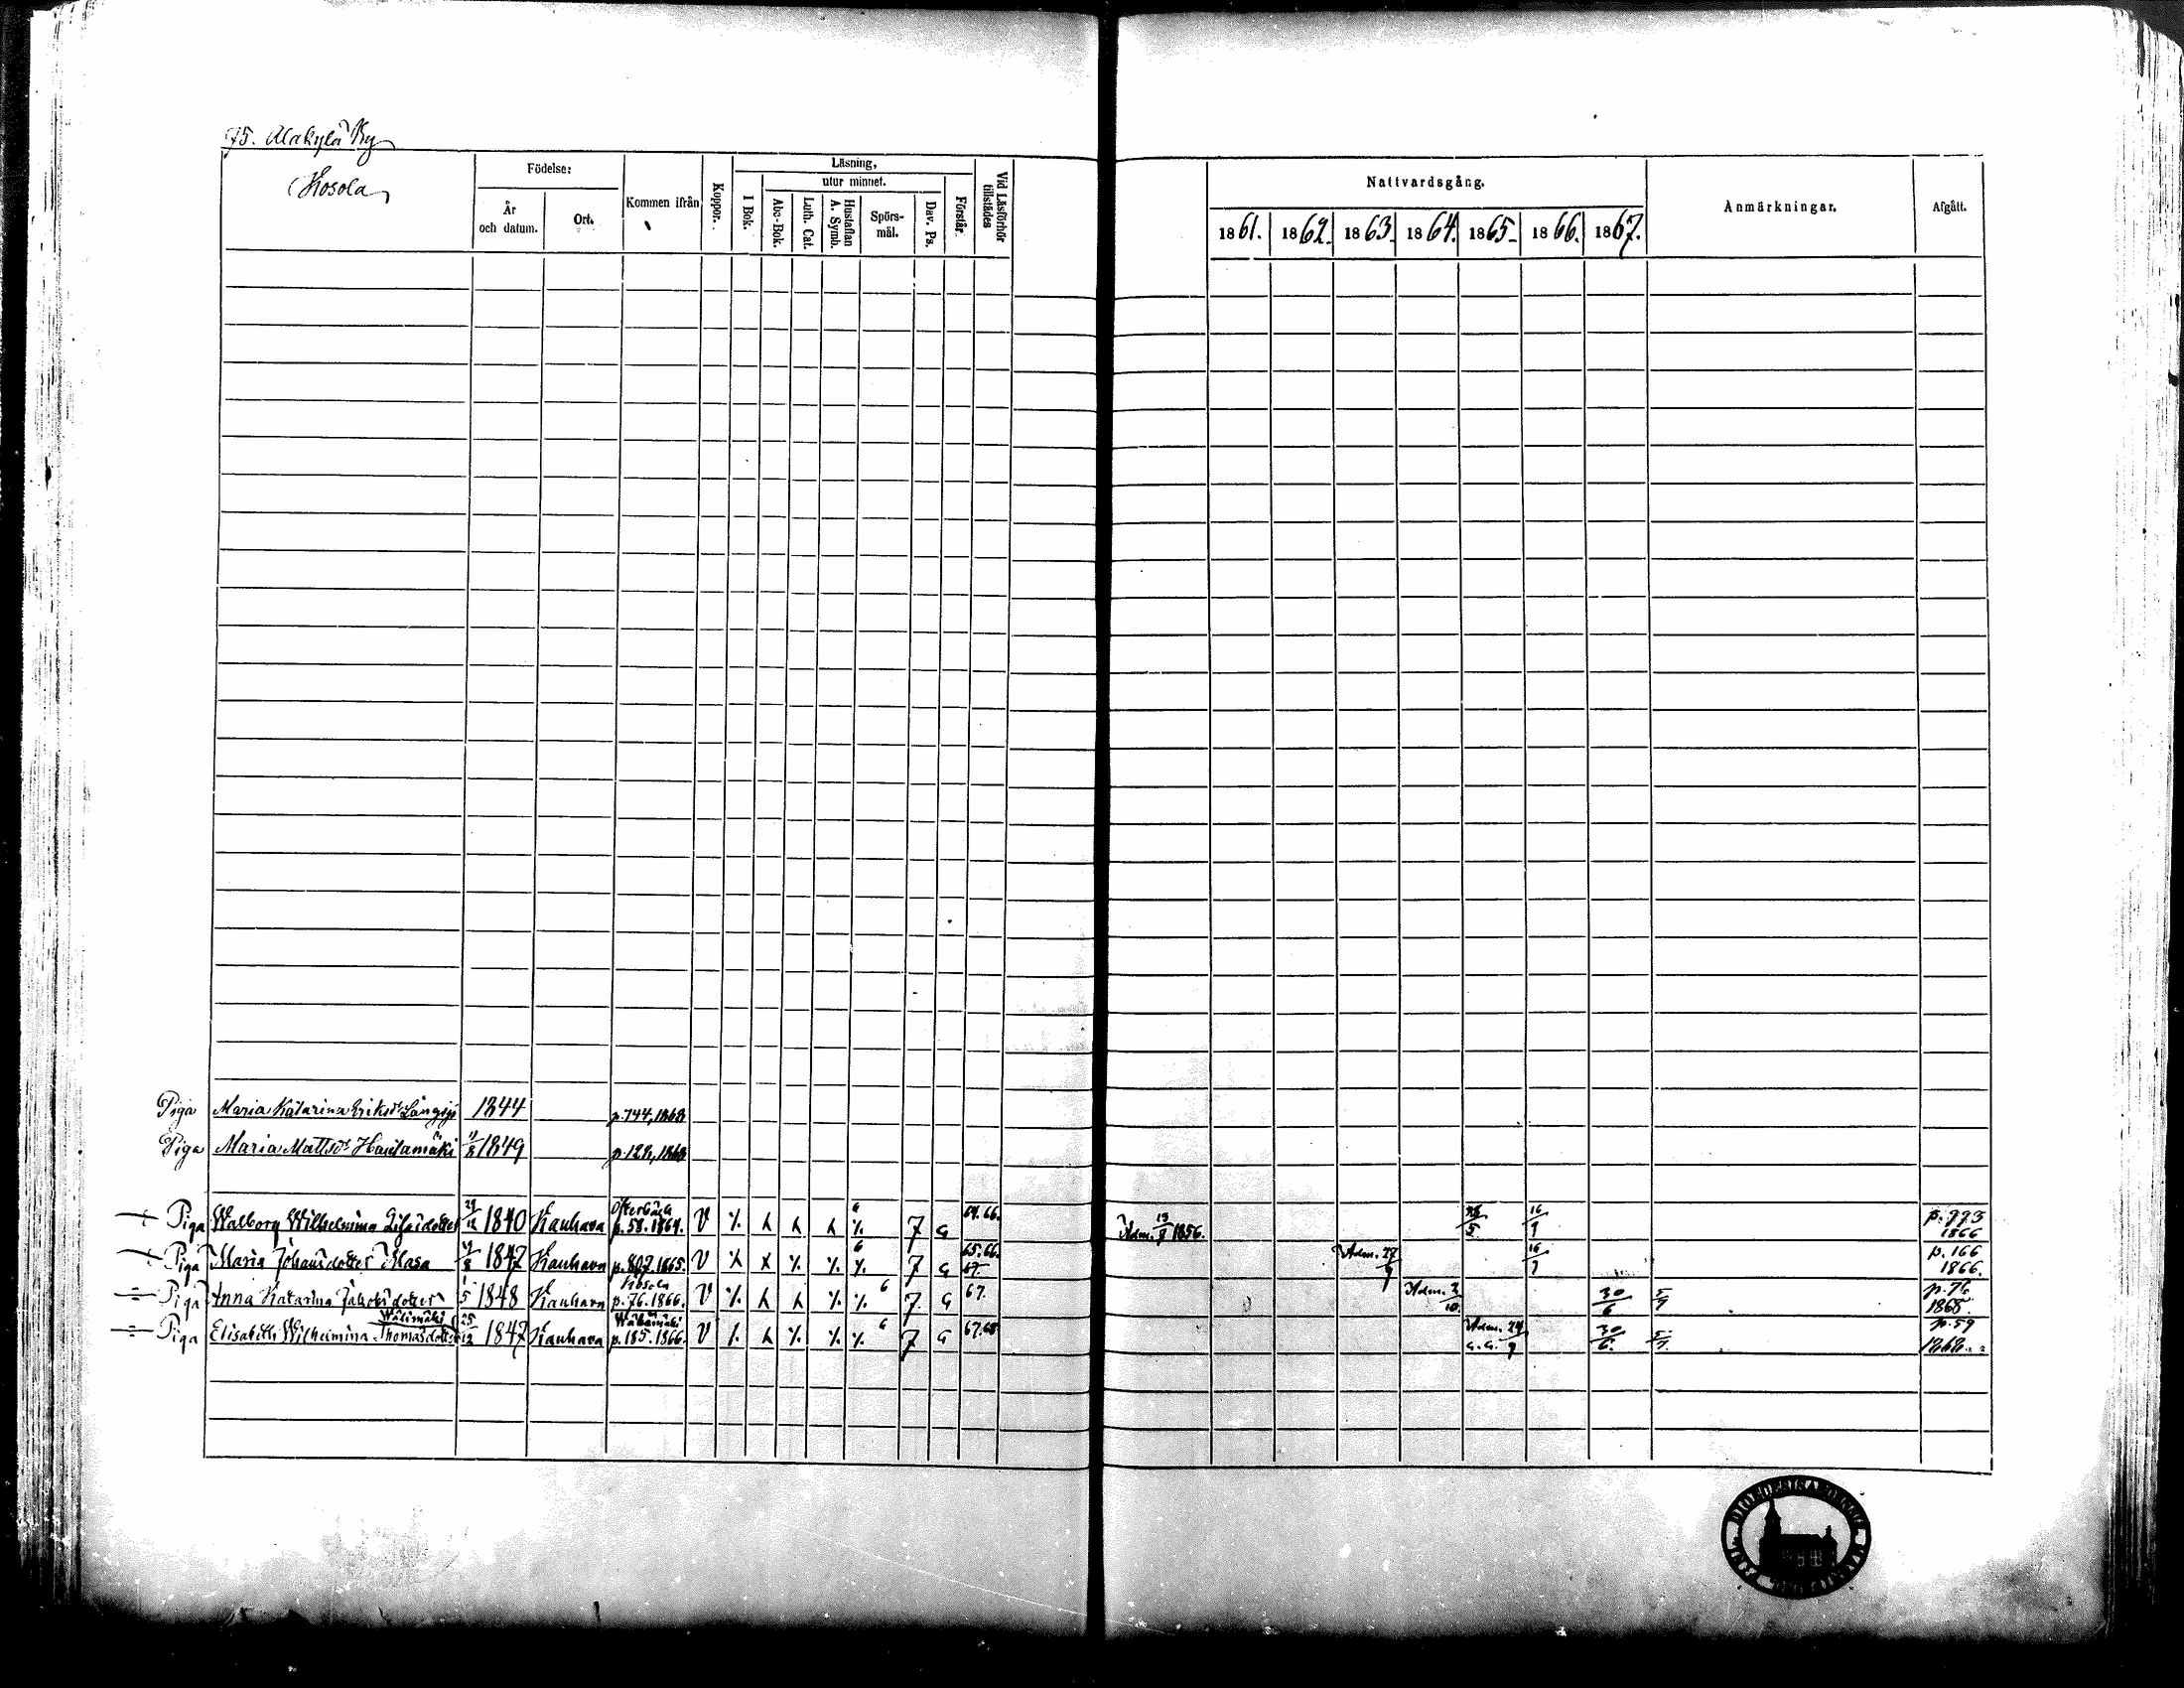 75. Alakylä By
Kosola
Födelse:
År och datum.
Ort.
Kommen ifrån
Koppor.
Läsning,
I Bok.
utur minnet.
Abc-Bok.
Luth. Cat.
Hustaflan A. Symb.
Spörs-mål.
Dav. Ps.
Förstår.
Vid Läsförhör tillstädes
Nattvardsgång.
1861. 1862. 1863. 1864. 1865. 1866. 1867.
Anmärkningar.
Afgått.
Piga Maria Katarina Eriksdr 1844 p. 744, 1868
Piga Maria Mattsdr Hautamäki 1849 p. 128, 1868
Piga Walborg Wilhelmina 29/12 1840 Kauhava Österbäck p. 58. 1864. V 7 G 64. 66. Adm. 1856. 16/9 p. 773 1866
Piga Maria Johansdotter Masa 1847 Kauhava p. 802. 1865. V 6 7 G 65. 66. 67. Adm. 27/9 16/9 p. 166 1866.
Piga Anna Katarina Jakobsdotter 1/5 1848 Kauhava Kosola p. 76. 1866. V 6 7. G 67. Adm. 2/10. 30/6 p. 76 1868.
Wälimäki
Piga Elisabeth Wilhelmina Thomasdotter 25/12 1847 Kauhava Wälimäki p. 185. 1866. V 6 7 G 67. 68 Adm. 24/9 G. G. 30/6. p. 59 1868.